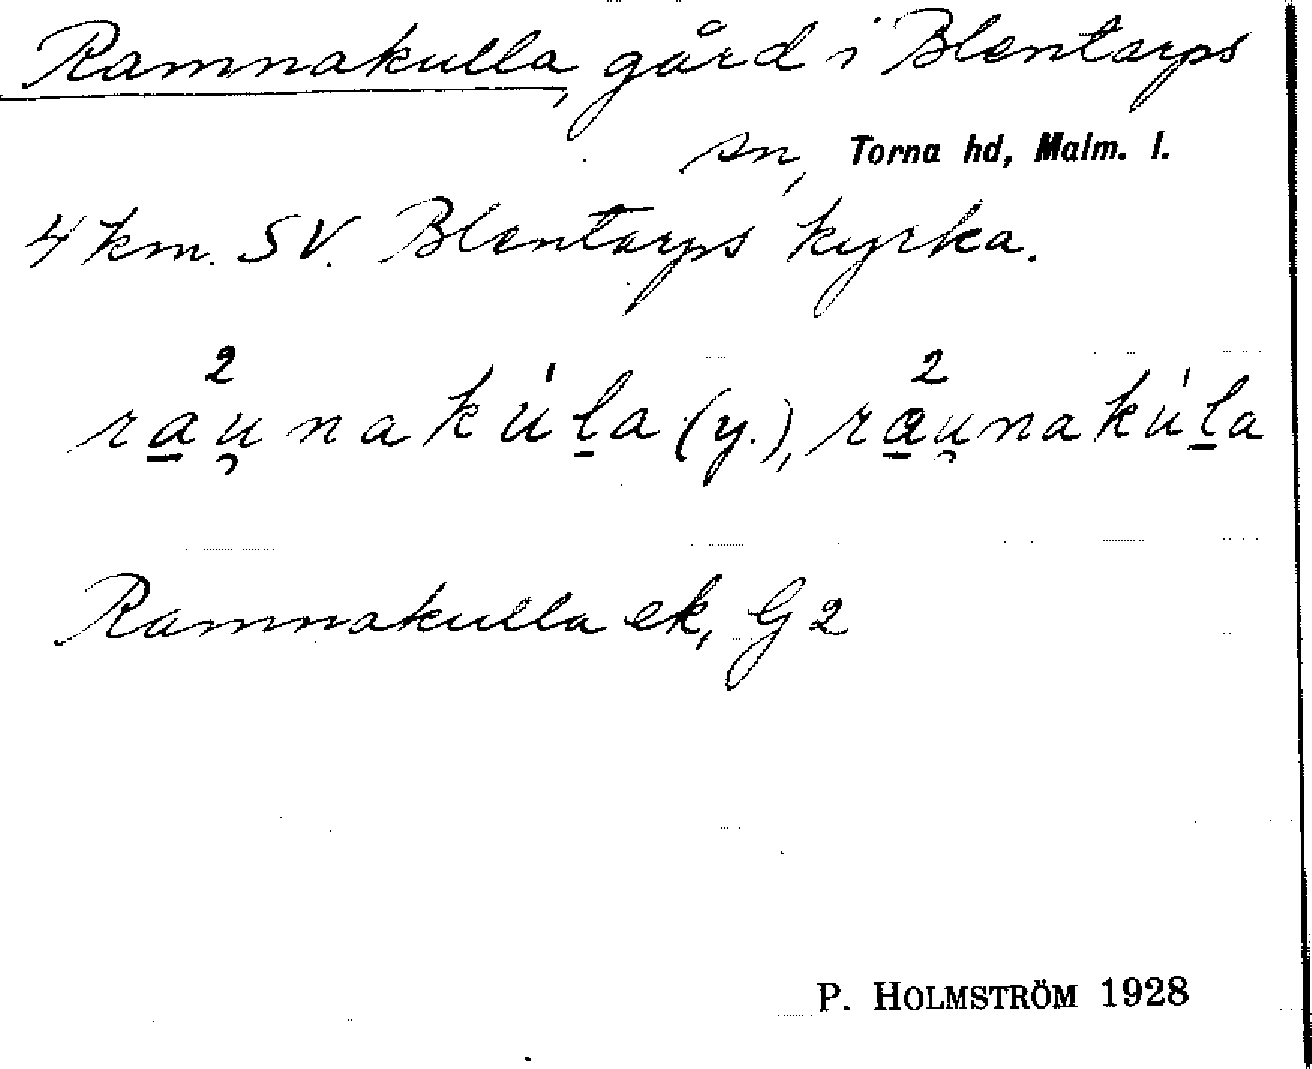 Ramnakulla, gård i Blentarps
sn, Torna hd, Malm. l.
4 km. SV. Blentarps kyrka.
ra̲²u̯nakúl̲a (y.), ra̲²u̯nakúl̲a
Ramnakulla ek, G 2
P. HOLMSTRÖM 1928